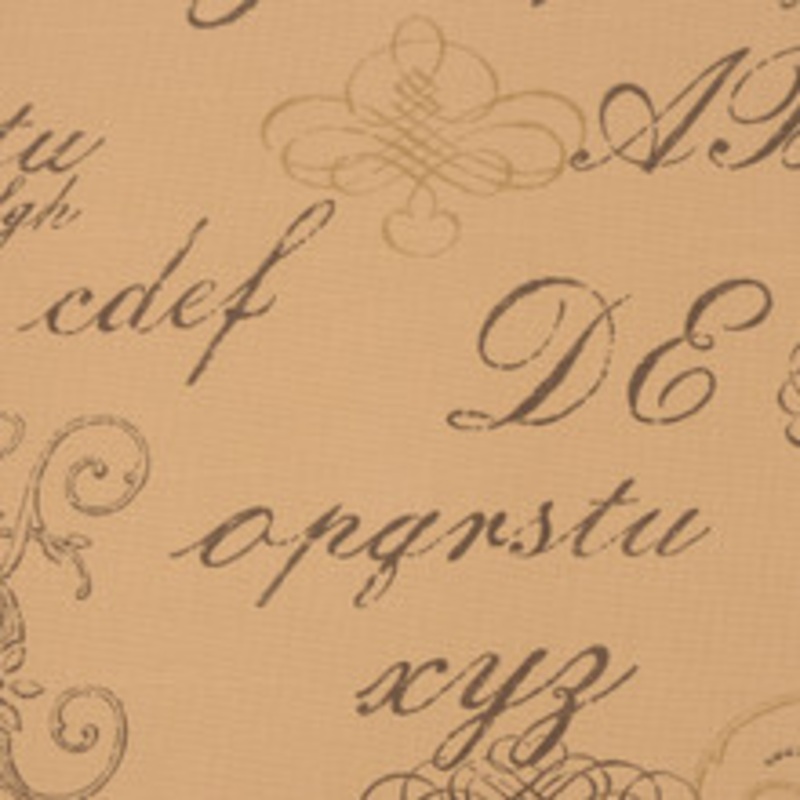 AB
tu
gh
cdef
DE
opqrstu
xyz